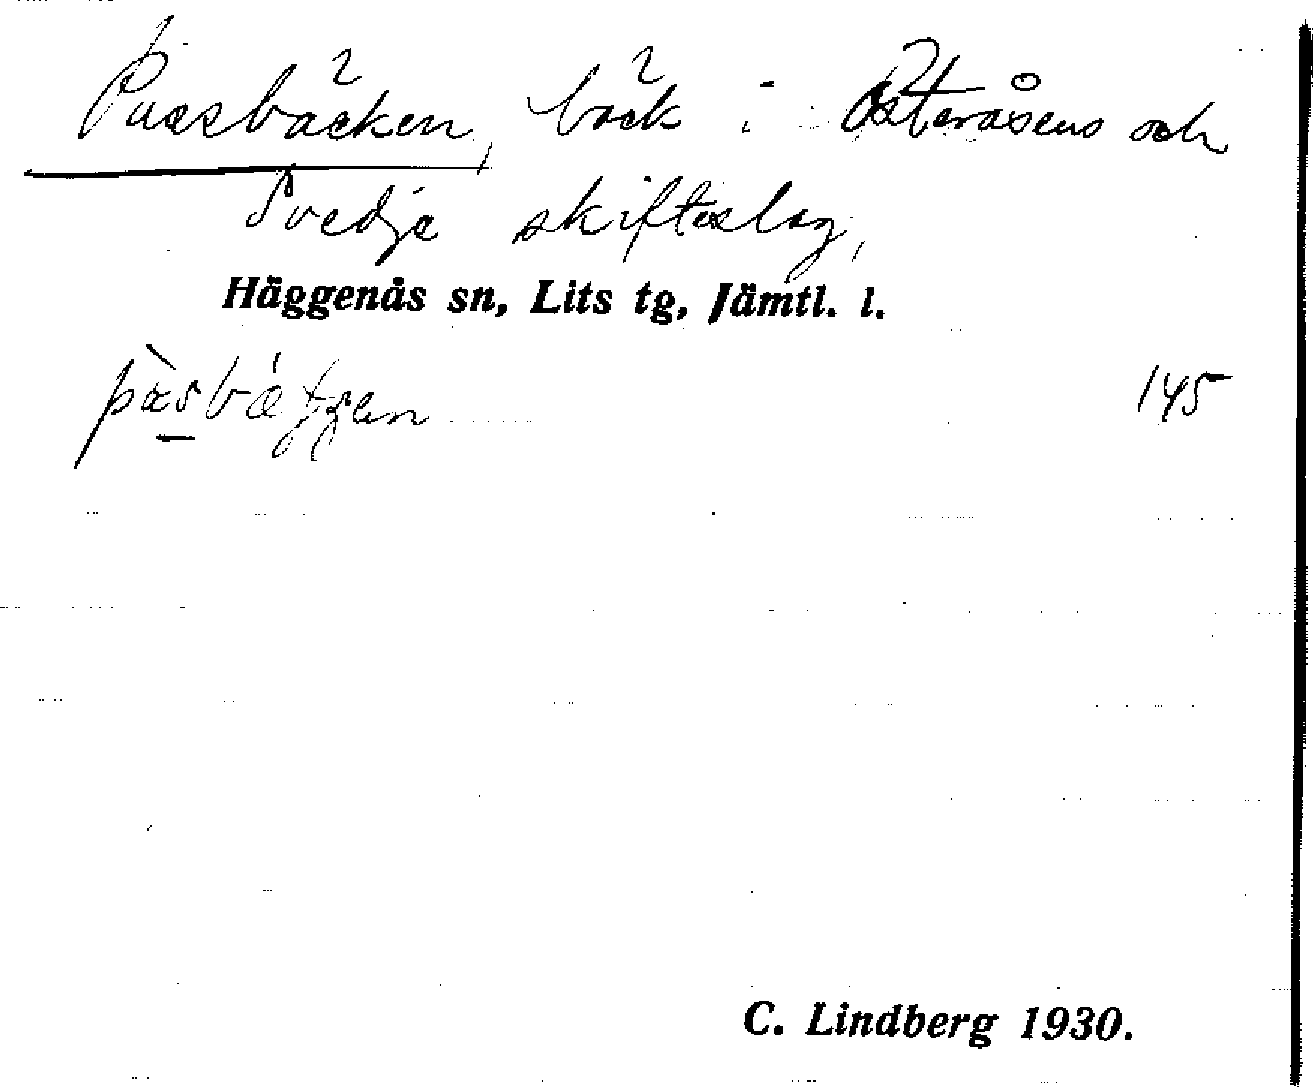 Pussbäcken, bäck i Österåsens och
Svedje skifteslag,
Häggenås sn, Lits tg, Jämtl. l.
145
C. Lindberg 1930.